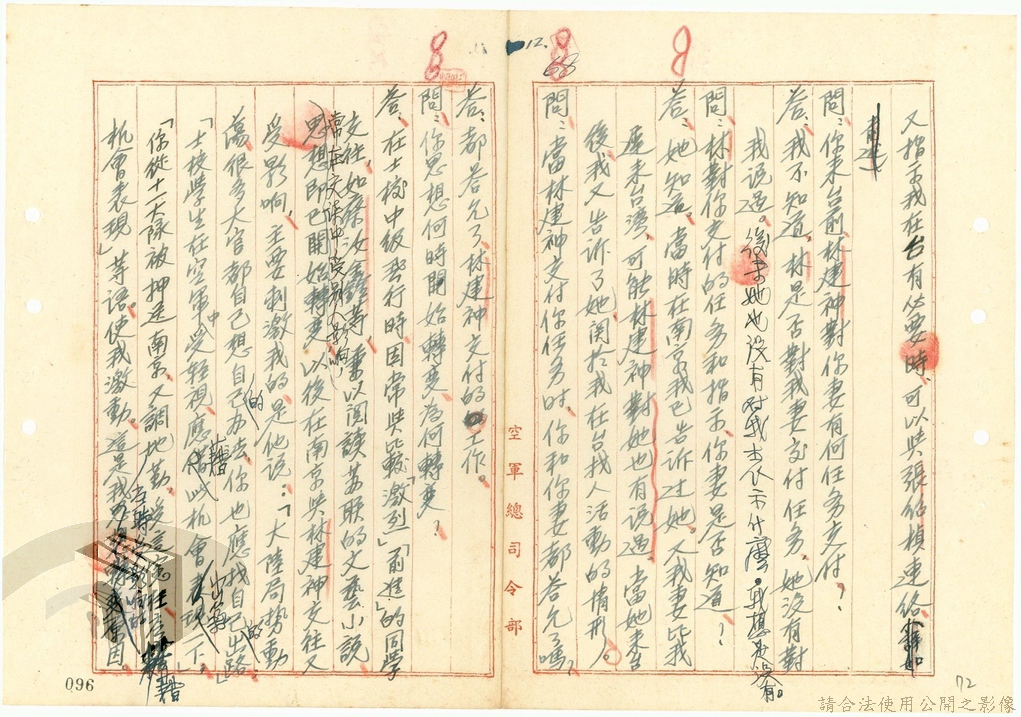 又指示我在台有必要時,可以與張紹楨連絡
問:你來台前,林建神對你妻有何任務交付?
答:我不知道,林是否對我妻交付任務,她沒有對
我說過。後來她也沒有對我表示什麼。我想為沒有。
問:林對你交付的任務和指示你妻是否知道?
答:她知道。當時在南京我已告訴過她。又我妻比我
遲來台灣,可能林建神對她也有說過。當她來台
後我又告訴了她關於我在台找人活動的情形。
問:當林建神交付你任務时,你和你妻都答允了嗎?
空軍總司令部
答:都答允了林建神交付的工作。
問:你思想何時開始轉變?為何轉變?
答:在士校中級班行時因常與比較「激烈」「前進」的同學
交往,如蘇汝鑫等,並以閱讀蘇聯的文藝小說
常在言談中受別人影响,
思想即已開始轉變,以後在南京與林建神交往又
受影响,主要刺激我的,是他說:「大陸局勢動
傷很多大官都自己想自己的办法,你也應找自己的出路」
「士校學生在空軍中受輕視,應藉以机會表現一下」
「你從十一大隊被押送南京,又調地勤,
机會表現」等語。使我激動。這是我
因。
096
8
8
8
12.
68
72
請合法使用公開之影像